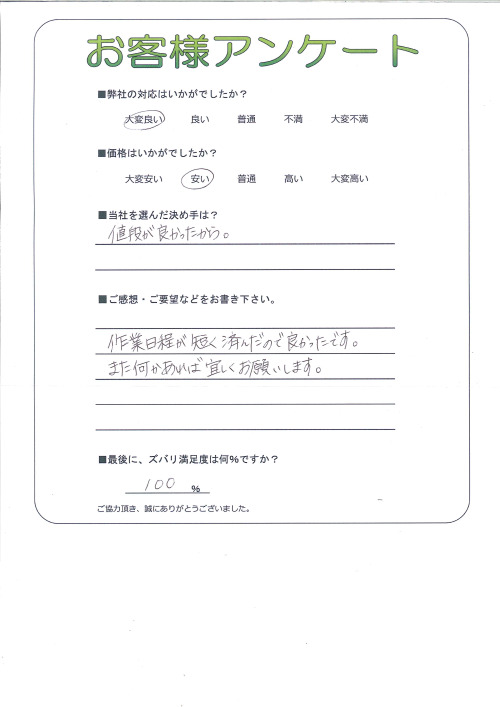 お客様アンケート
■弊社の対応はいかがでしたか？
大変良い 良い 普通 不満 大変不満
■価格はいかがでしたか？
大変安い 安い 普通 高い 大変高い
■当社を選んだ決め手は？
値段が良かったから。
■ご感想・ご要望などをお書き下さい。
作業日程が短く済んだので良かったです。
また何かあれば宜しくお願いします。
■最後に、ズバリ満足度は何%ですか？
100 %
ご協力頂き、誠にありがとうございました。